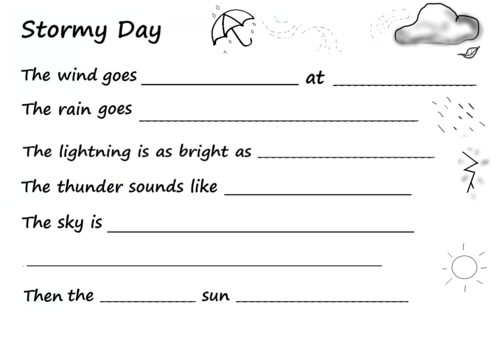 Stormy Day
The wind goes ____________ at ____________
The rain goes ______________________
The lightning is as bright as ______________
The thunder sounds like ______________
The sky is ________________________
____________________________
Then the ________ sun ______________